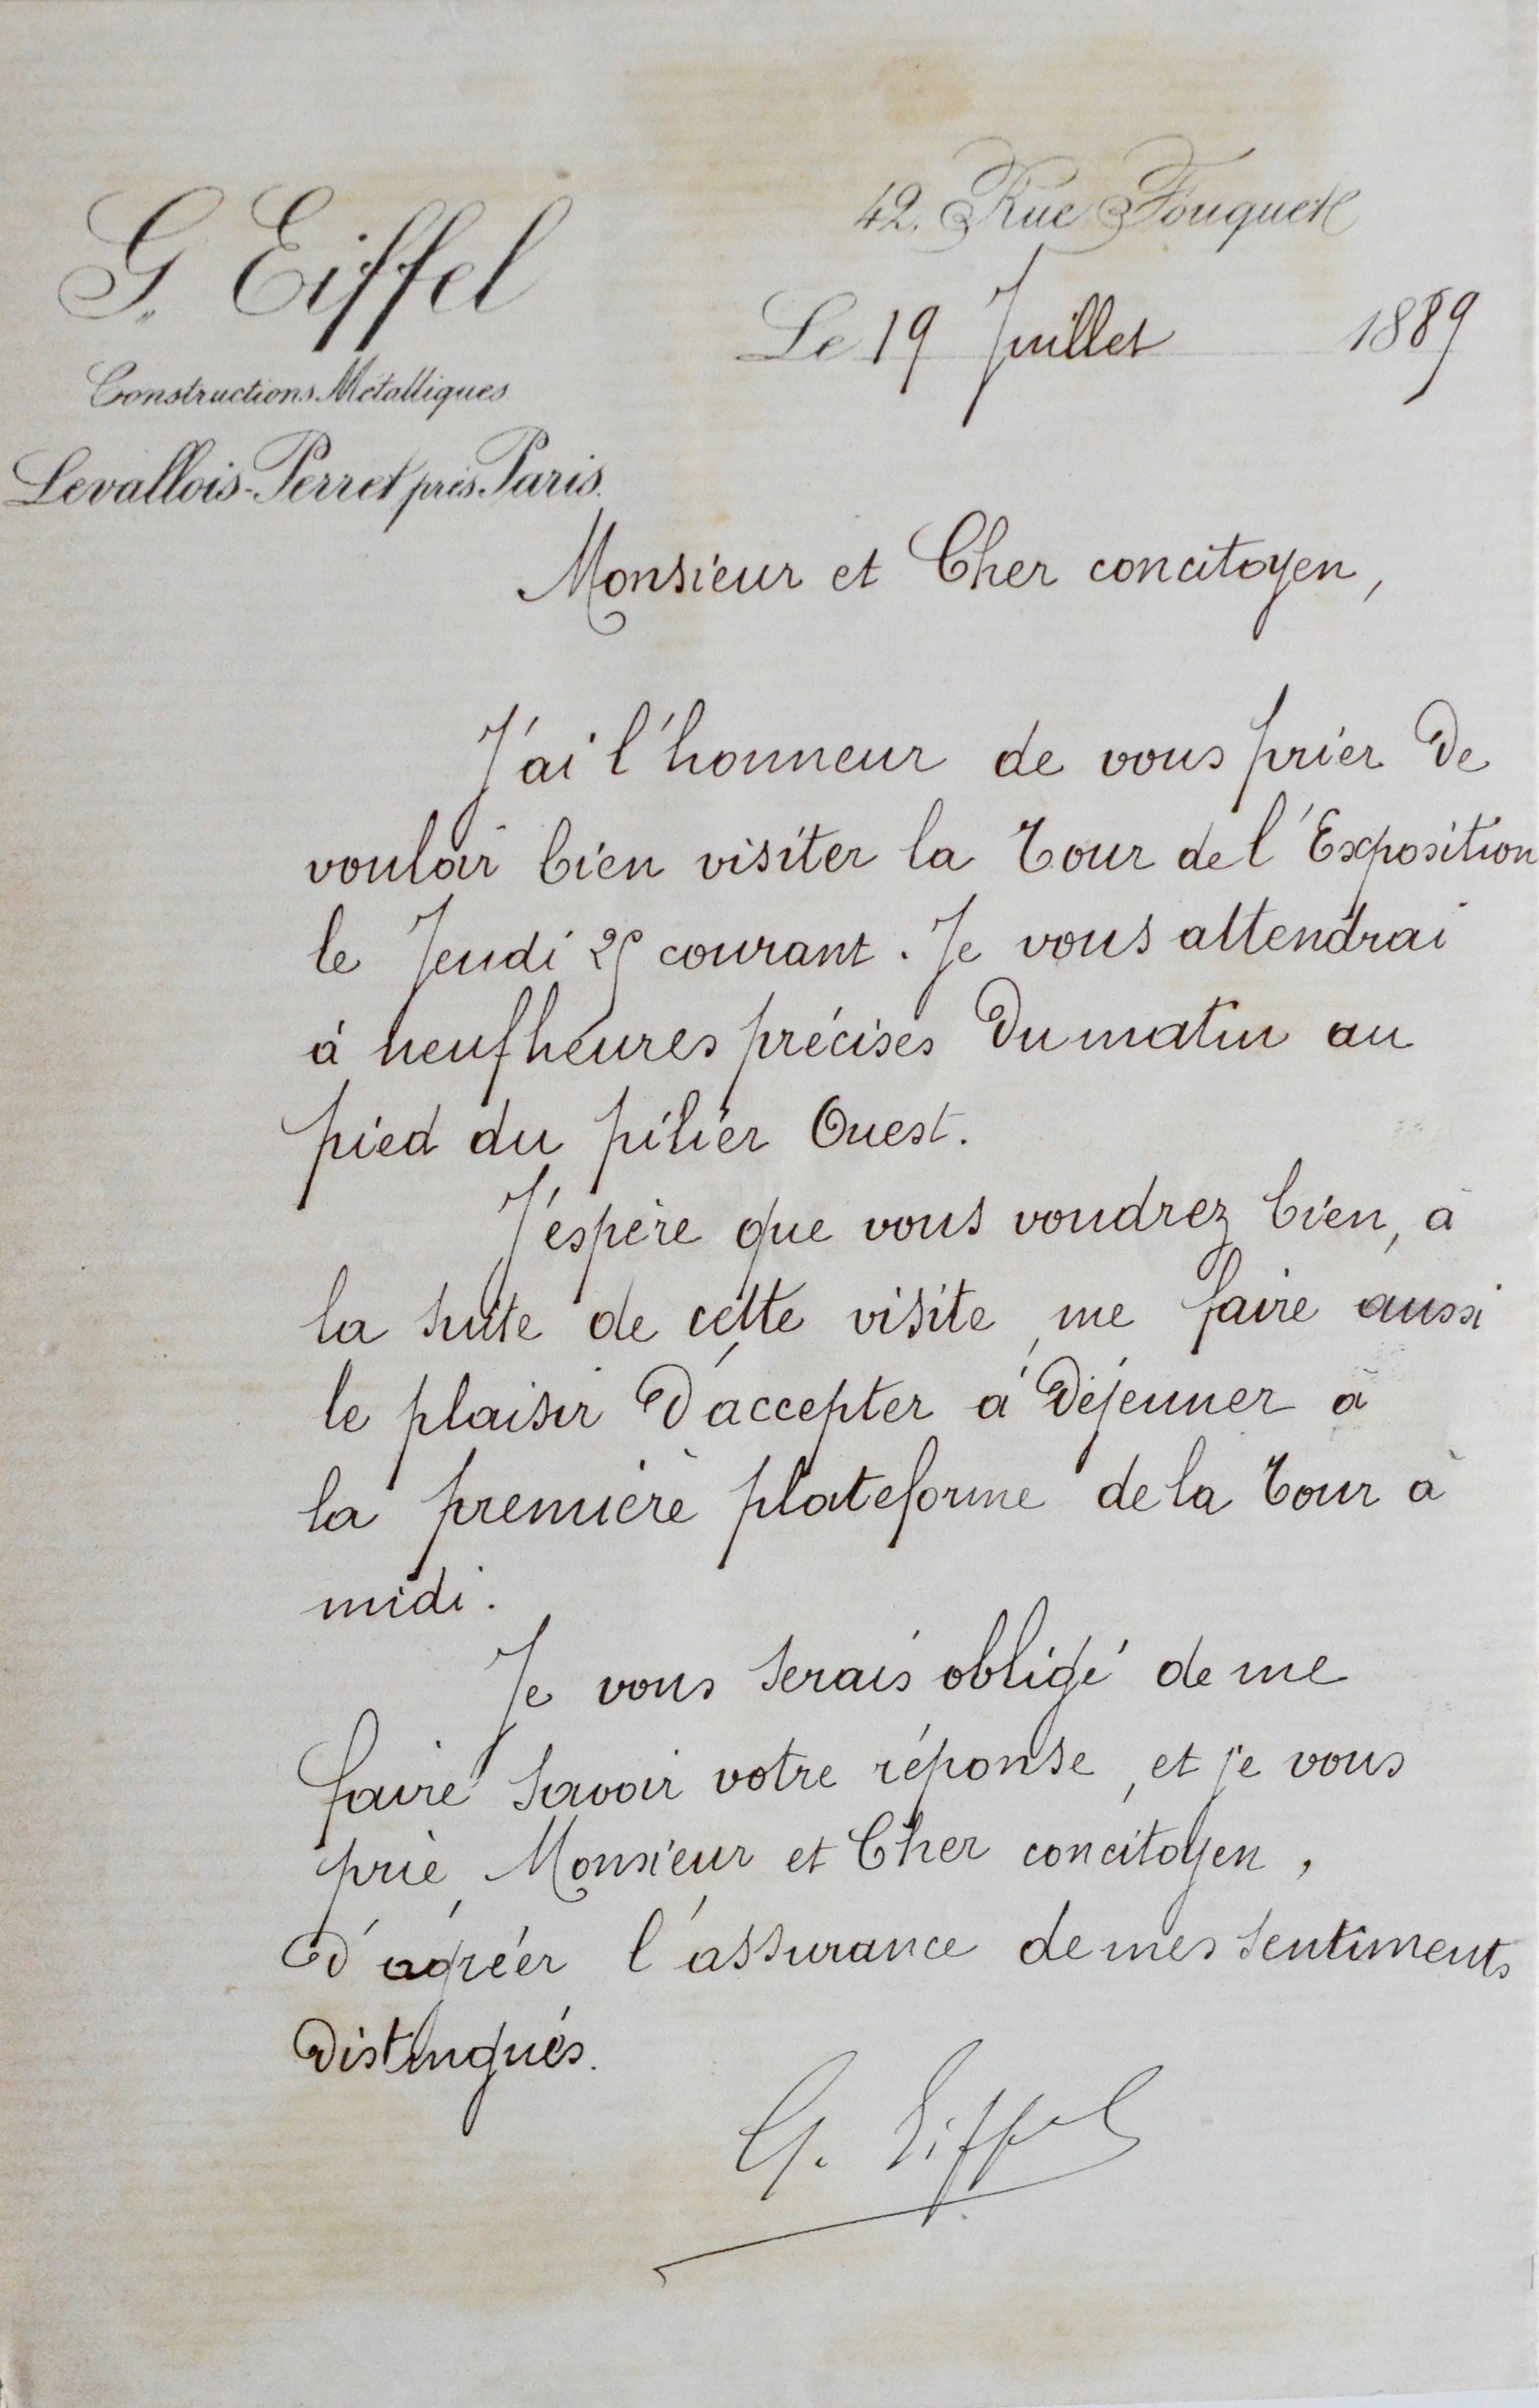 G. Eiffel
Constructions Métalliques
Levallois-Perret près Paris.
42, Rue Fouquet
Le 19 Juillet 1889
Monsieur et Cher concitoyen,
J'ai l'honneur de vous prier de
vouloir bien visiter la Tour de l'Exposition
le Jeudi 25 courant. Je vous attendrai
à neuf heures précises du matin au
pied du pilier Ouest.
J'espère que vous voudrez bien, à
la suite de cette visite, me faire aussi
le plaisir d'accepter à déjeuner à
la première plateforme de la Tour à
midi.
Je vous serais obligé de me
faire savoir votre réponse, et je vous
prie, Monsieur et Cher concitoyen,
d'agréer l'assurance de mes sentiments
distingués.
G. Eiffel